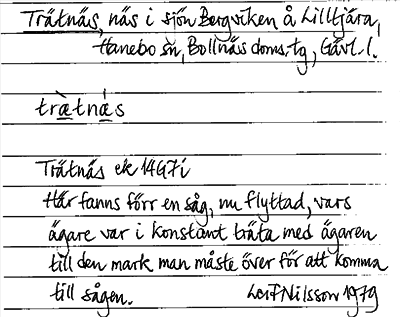 Trätnäs, näs i sjön Bergviken å Lilltjära,
Hanebo sn, Bollnäs doms.tg, Gävl. l.
trä̀tnä́s
Trätnäs ek 14G7i
Här fanns förr en såg, nu flyttad, vars
ägare var i konstant träta med ägaren
till den mark man måste över för att komma
till sågen. Leif Nilsson 1979